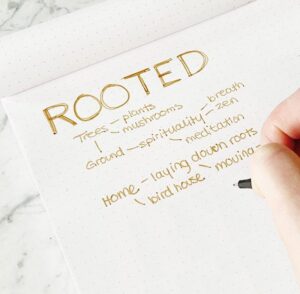 ROOTED
Trees - plants
- mushrooms
breath
Ground - spirituality - zen
- meditation
Home - laying down roots
- bird house - moving -